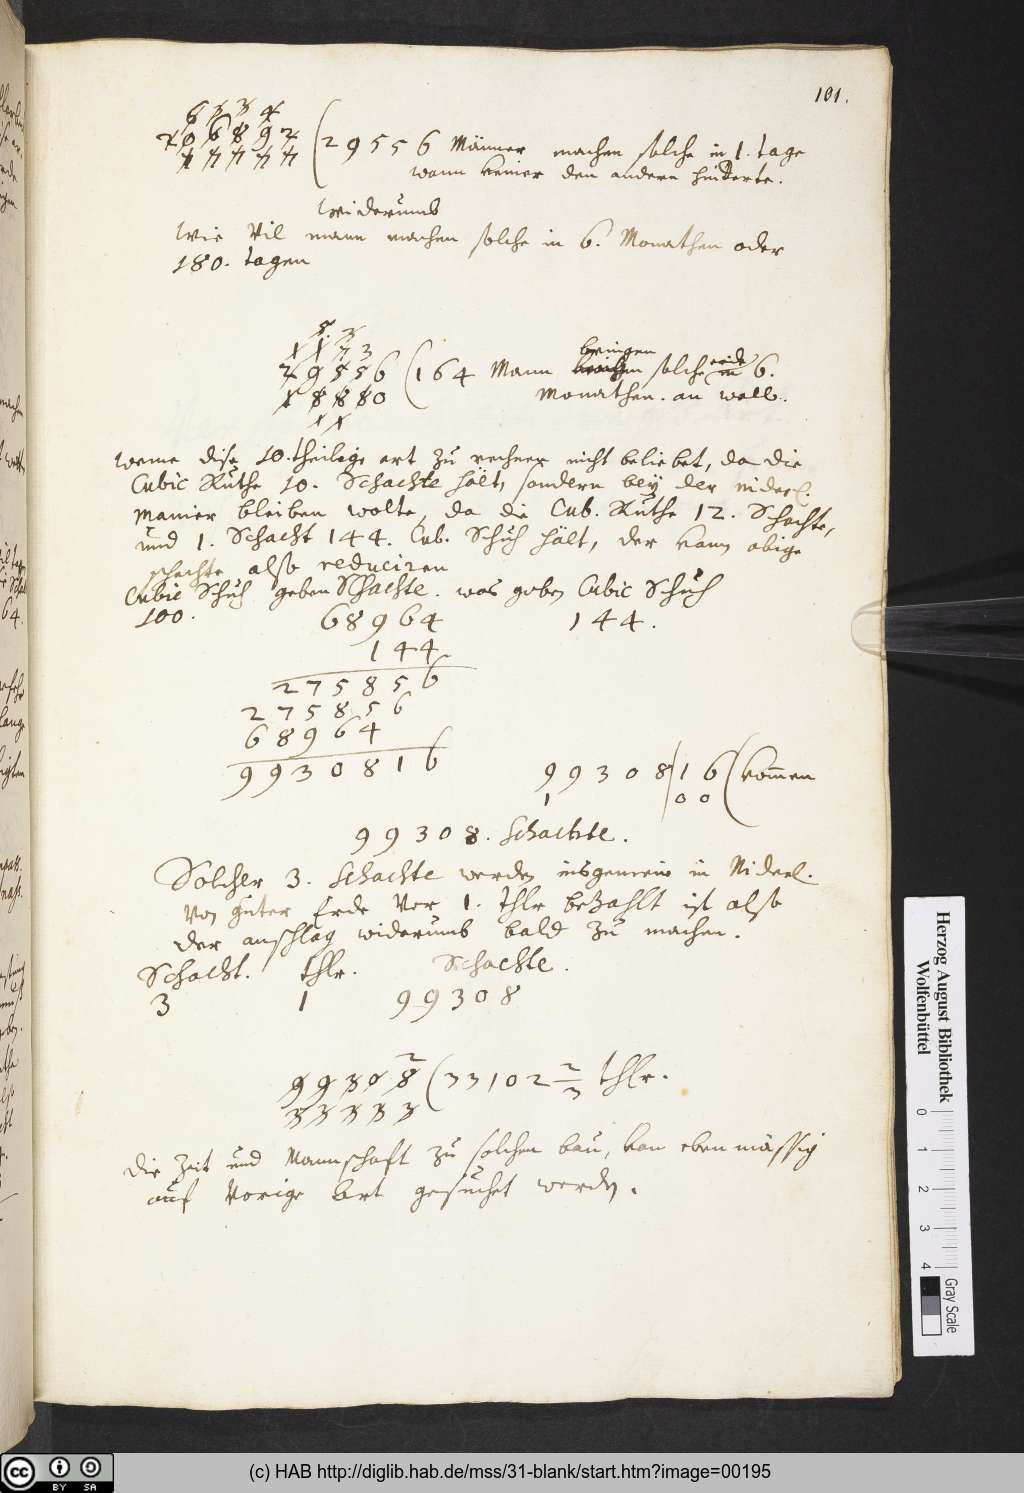 101.
6 3 3 4
2 0 6 8 9 2 ( 2 9 5 5 6 Männer machen solche in 1. tage
7 7 7 7 7
wann keiner den andern hinderte.
Widerumb
Wie vil mann machen solche in 6. Monathen oder
180. tagen
5 3
1 1 7 3
2 9 5 5 6 ( 1 6 4 Mann bringen solche in 6.
1 8 8 8 0 Monathen. an wall.
1 1
wenne dise 10. theilige art zu rechnen nicht beliebet, da die
Cubic Ruthe 10. Schachte hält, sondern bey der niderl.
manier bleiben wolte, da die Cub. Ruthe 12. Schachte,
und 1. Schacht 144. Cub. Schuh hält, der kann obige
schachte also reduciren
Cubic Schuh geben Schachte. was geben Cubic Schuh
100. 68964 144.
144.
275856
275856
68964
9930816
99308|16 ( kommen
1 00
99308. Schachte.
Solcher 3. Schachte werden insgemein in Niderl.
von guter Erde vor 1. thlr bezahlt ist also
der anschlag widerumb bald zu machen.
Schacht. thlr. Schachte.
3 1 99308
2
99308 ( 33102 2/3 thlr.
33333
die Zeit und Mannschaft zu solchem bau, kan ebenmässig
auf vorige Art gesuchet werden.
Herzog August Bibliothek
Wolfenbüttel
0 1 2 3 4
Gray Scale
cc BY SA
(c) HAB http://diglib.hab.de/mss/31-blank/start.htm?image=00195